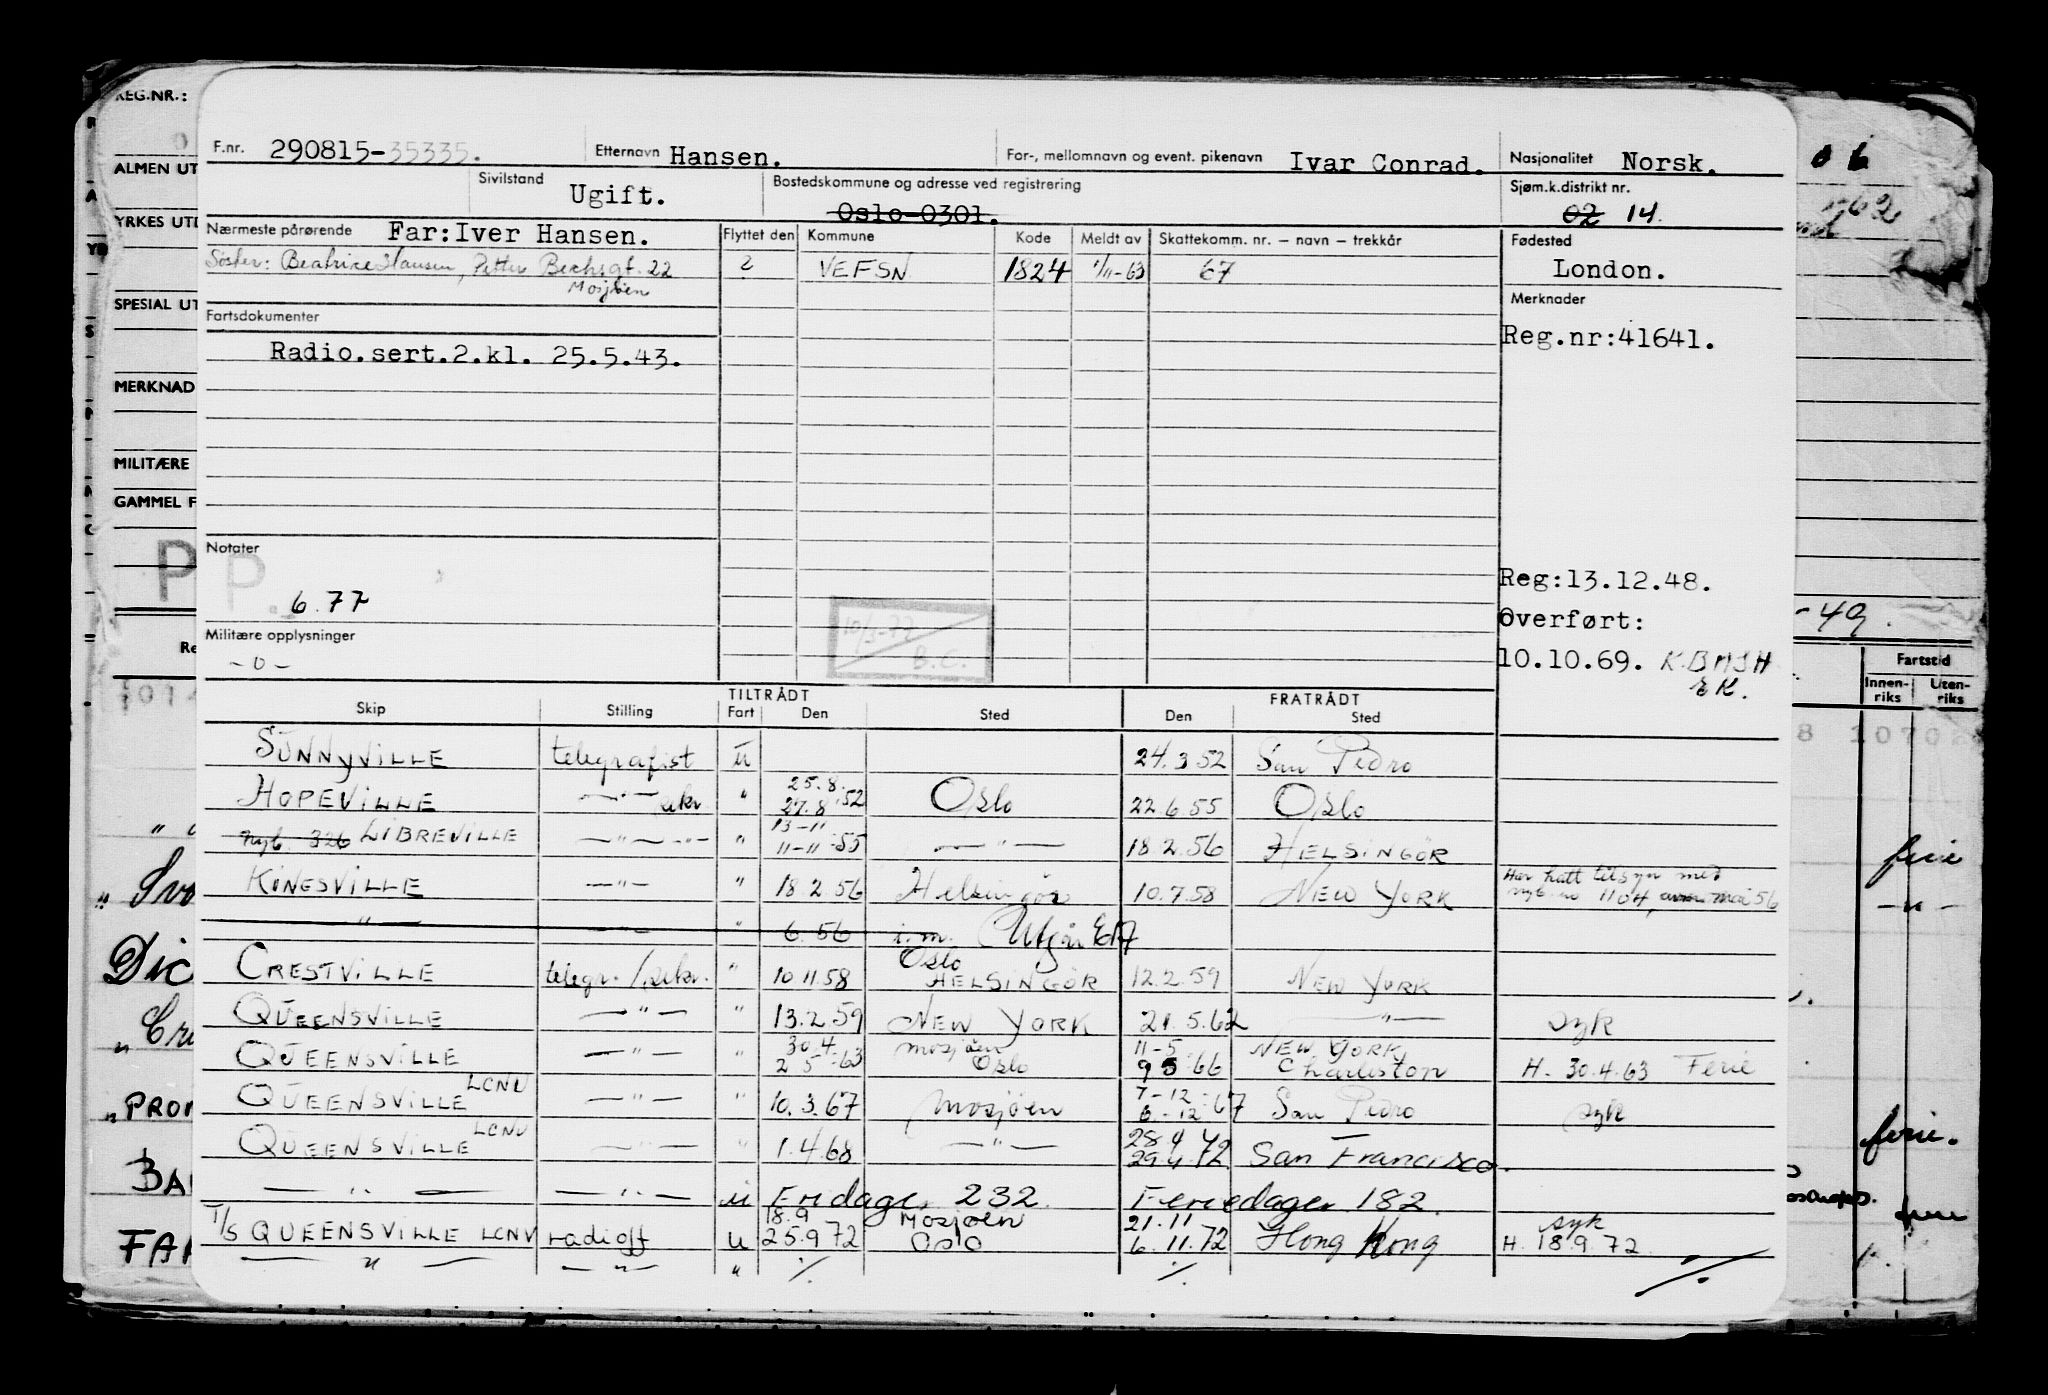 F.nr. 290815-35335. Etternavn Hansen. For-, mellomnavn og event. pikenavn Ivar Conrad. Nasjonalitet Norsk.
Sivilstand Ugift. Bostedskommune og adresse ved registrering Oslo-0301. Sjøm.k.distrikt nr. 02 14.
Nærmeste pårørende Far:Iver Hansen. Flyttet den Kommune Kode Meldt av Skattekomm. nr. – navn – trekkår Fødested
Søster: Beatrice Hansen, Petter Bechsgt. 22 ? VEFSN 1824 1/11-63 67 London.
Mosjøen
Merknader
Fartsdokumenter
Reg.nr:41641.
Radio.sert.2.kl. 25.5.43.
Notater
P.
Reg:13.12.48.
6.77
Overført:
10/3-77
B.C.
Militære opplysninger
-0-
10.10.69. K.BMSH
EK.
TILTRÅDT FRATRÅDT
Skip Stilling Fart Den Sted Den Sted
SUNNYVILLE telegrafist u 24.3.52 San Pedro
HOPEVILLE —"— sekr. " 25.8. 27.8.52 Oslo 22.6.55 Oslo
nyb. 326 LIBREVILLE —"— —"— " 13-11 11-11-55 —"— 18.2.56 HELSINGÖR
KINGSVILLE —"— " 18.2.56 Helsingör 10.7.58 NEW YORK Har hatt tilsyn med nyb. no 1104, mai 56
—"— —"— " 6.56 i.m. Utgår
CRESTVILLE telegr./sekr. " 10.11.58 Oslo HELSINGÖR 12.2.59 NEW YORK
QUEENSVILLE —"— " 13.2.59 NEW YORK 21.5.62 —"— syk
QUEENSVILLE —"— " 30.4. 2.5.63 Mosjöen Oslo 11-5 9.5.66 NEW YORK Charleston H. 30.4.63 Ferie
QUEENSVILLE LCNV —"— " 10.3.67 Mosjöen 7-12 6-12.67 San Pedro syk
QUEENSVILLE LCNV —"— " 1.4.68 —"— 28.4.72 29.4.72 San Francisco.
—"— —"— u Fridager 232. Feriedager 182.
T/S QUEENSVILLE LCNV radioff u 18.9 25.9.72 Mosjøen Oslo 21.11 6.11.72 Hong Kong syk H. 18.9.72.
—"— —"— " ./. ./. ./.
REG.NR.:
ALMEN UT
YRKES UTD
SPESIAL UT
MERKNAD
MILITÆRE
GAMMEL F
P
Re
Dic
PROM
BA
FAR
-49.
Fartstid
Innen-riks Uten-riks
8 10702
ferie
—"—
ferie.